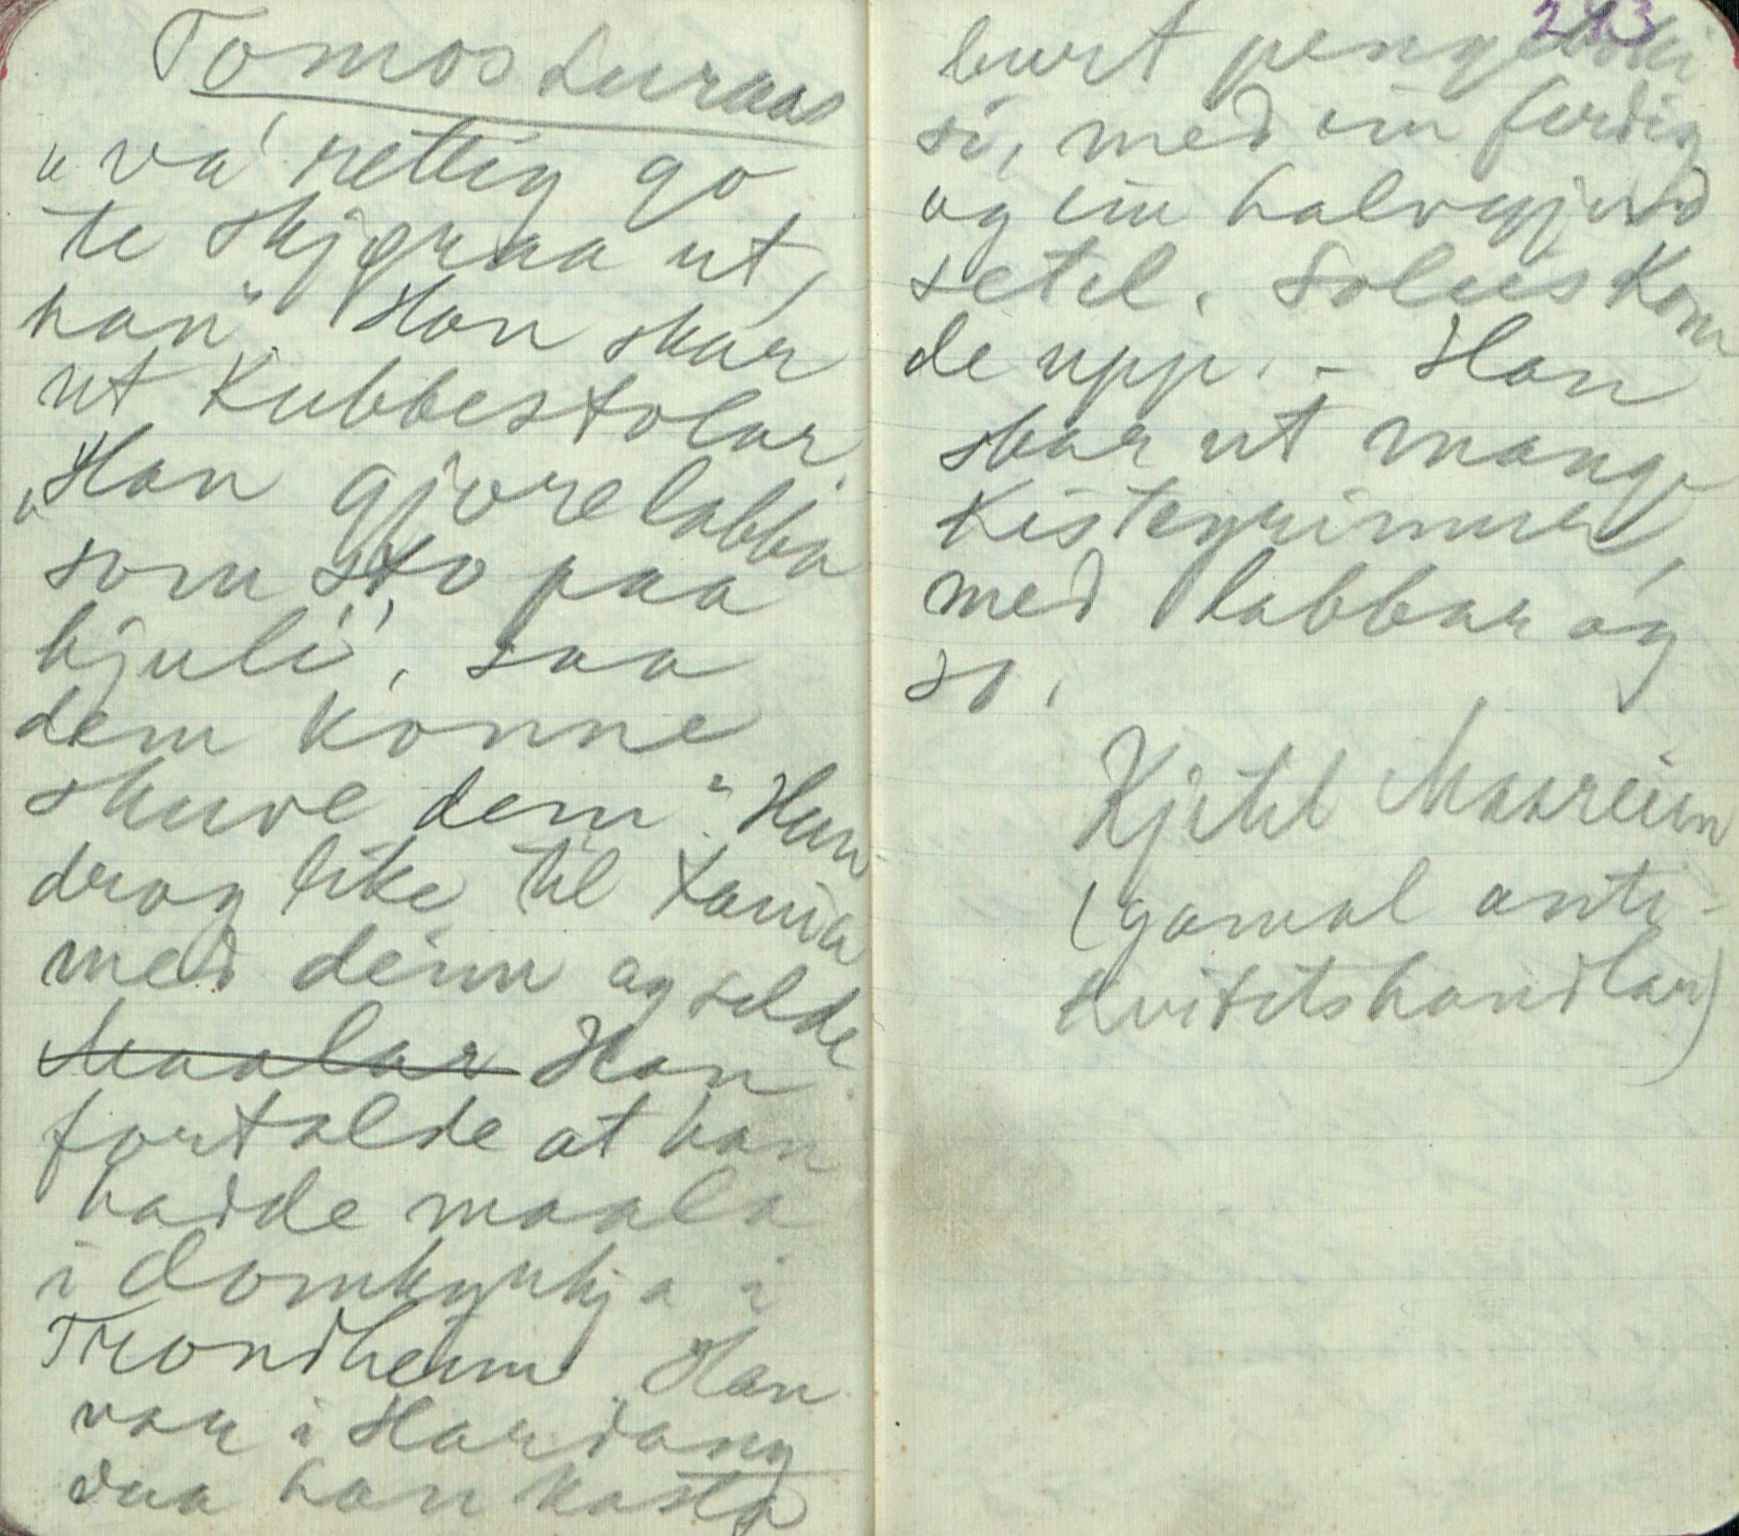 Tomos Luraas
"va' rettig go
te skjeraa ut,
han". Han skar
ut Kubbestolar.
"Han gjore labba
som sto paa
hjuli', saa
dem konne
skuve dem". Han
drog like til
med deim og selde
Maalar Han
fortalde at han
hadde maala
i domkyrkja i
Trondheim Han
var i Hardang
daa han kasta
243
burt pengeboki
si, med ein ferdig
og ein halvgjord
setel. Soleis kom
de upp. - Han
skar ut mange
Kistegrimer,
med labbar og
so.
Kjetil Maareim
(gamal anti-
kvitetshandlar)